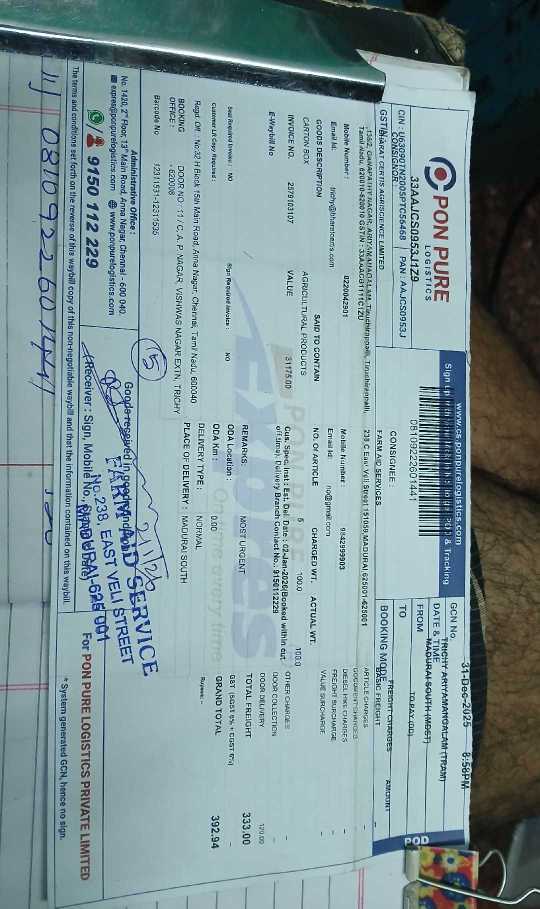 PON PURE
LOGISTICS
33AAJCS0953J1Z9
CIN : U63090TN2005PTC56468 | PAN : AAJCS0953J
www.cs.ponpurelogistics.com
08109222601441
GCN No.
31-Dec-2025 8:58PM
DATE & TIME
FROM TRICHY ARIYAMANGALAM (TRAM)
TO MADURAI SOUTH (MDST)
BOOKING MODE TO PAY (DD)
POD
CONSIGNOR :
GSTIN
BHARAT CERTIS AGRISCIENCE LIMITED
Tamil Nadu, 620010-620010 GSTIN : 33AAACB1111C1ZU
Mobile Number : 8220042901
Email Id: trichy@bharatcertis.com
CONSIGNEE :
FARM AID SERVICES
238 C East Veli Street 151059 MADURAI 625001-625001
Mobile Number : 9842999903
Email Id: no@gmail.com
GOODS DESCRIPTION SAID TO CONTAIN NO. OF ARTICLE CHARGED WT. ACTUAL WT.
CARTON BOX AGRICULTURAL PRODUCTS 5 100.0 100.0
INVOICE NO. 2379103107 VALUE 31175.00
Cus. Spec. Inst : Est. Del. Date : 02-Jan-2026(Booked within cut
off time), Delivery Branch Contact No.: 9150112229
E-Waybill No
REMARKS: MOST URGENT
Seal Required Invoice : NO Sign Required Invoice : NO
ODA Location :
Customer LR Copy Required :
ODA Km : 0.00
Regd. Off : No.32 H Block 15th Main Road, Anna Nagar, Chennai, Tamil Nadu, 600040
DELIVERY TYPE : NORMAL
BOOKING OFFICE : DOOR NO : 11 / C, A. P. NAGAR, VISHWAS NAGAR EXTN, TRICHY - 620008
PLACE OF DELIVERY : MADURAI SOUTH
Barcode No 12311531-12311535
FREIGHT CHARGES AMOUNT
BASIC FREIGHT -
ARTICLE CHARGES -
DOCUMENT CHARGES
DIESEL HIKE CHARGES
FREIGHT SURCHARGE -
VALUE SURCHARGE -
OTHER CHARGES -
DOOR COLLECTION -
DOOR DELIVERY 120.00
TOTAL FREIGHT 333.00
GST (SGST 9% + CGST 9%)
GRAND TOTAL 392.94
Rupees: -
PON PURE
EXPRESS
Administrative Office :
No. 1420, 2nd Floor, 13th Main Road, Anna Nagar, Chennai - 600 040.
expre@ponpurelogistics.com www.ponpurelogistics.com
9150 112 229
5
Goods received in good condition
2/1/26
FARM AID SERVICE
No. 238, EAST VELI STREET
MADURAI-625 001
(Receiver : Sign, Mobile No.,
For PON PURE LOGISTICS PRIVATE LIMITED
The terms and conditions set forth on the reverse of this waybill copy of this non-negotiable waybill and that the information contained on this waybill.
* System generated GCN, hence no sign.
08109222601441